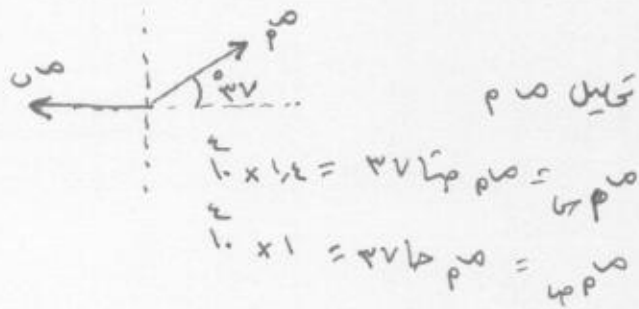 مـ م
مـ ٣٧°
تحليل مـ م
مـ م س = مـ م جتا ٣٧ = ١,٤ × ١٠⁴
مـ م ص = مـ م جا ٣٧ = ١ × ١٠⁴